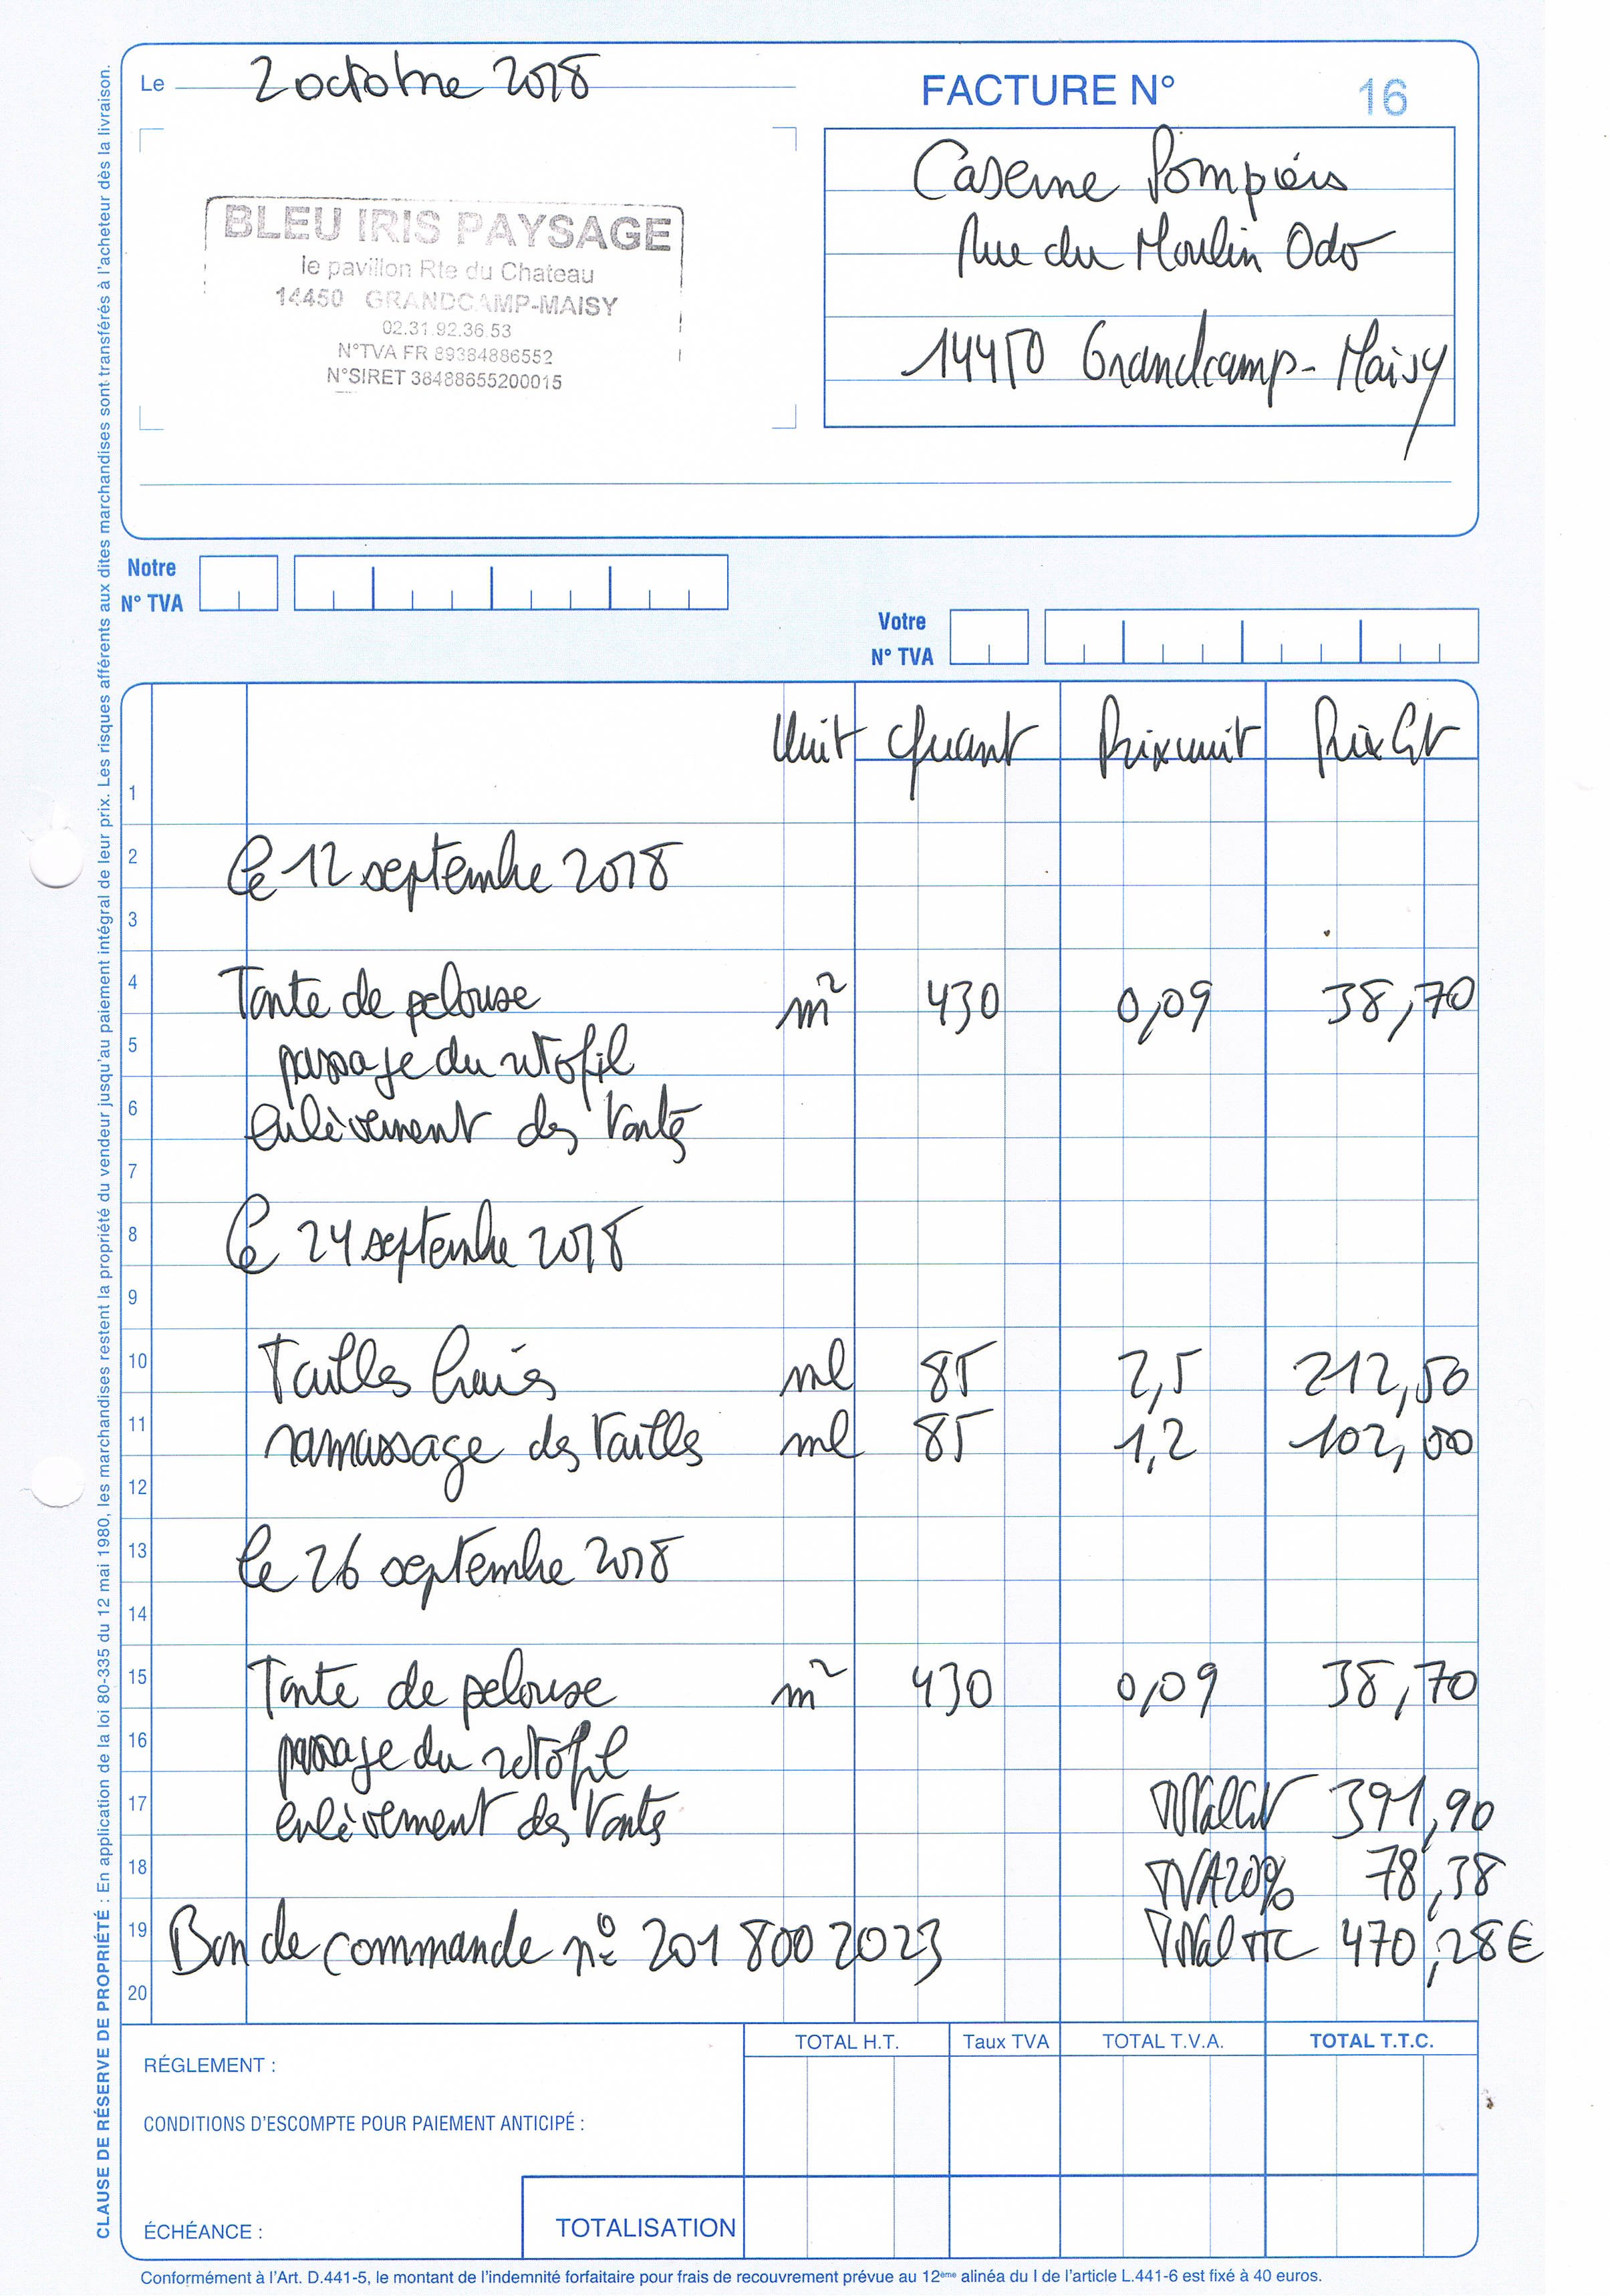 Le 2 octobre 2018
FACTURE N° 16
BLEU IRIS PAYSAGE
le pavillon Rte du Chateau
14450 GRANDCAMP-MAISY
02.31.92.36.53
N°TVA FR 89384886552
N°SIRET 38488655200015
Caserne Pompiers
Rue du Moulin Odo
14450 Grandcamp-Maisy
Notre
N° TVA
Votre
N° TVA
Unit Quant Prix unit Prix HT
1
2 Le 12 septembre 2018
3
4 Tonte de pelouse m² 430 0,09 38,70
5 passage du rotofil
6 enlèvement des tontes
7
8 Le 24 septembre 2018
9
10 Tailles haies ml 85 2,5 212,50
11 ramassage des tailles ml 85 1,2 102,00
12
13 Le 26 septembre 2018
14
15 Tonte de pelouse m² 430 0,09 38,70
16 passage du rotofil
17 enlèvement des tontes Total HT 391,90
18 TVA 20% 78,38
19 Bon de commande n° 2018002023 Total TTC 470,28€
20
TOTAL H.T. Taux TVA TOTAL T.V.A. TOTAL T.T.C.
RÉGLEMENT :
CONDITIONS D'ESCOMPTE POUR PAIEMENT ANTICIPÉ :
ÉCHÉANCE : TOTALISATION
Conformément à l'Art. D.441-5, le montant de l'indemnité forfaitaire pour frais de recouvrement prévue au 12ème alinéa du I de l'article L.441-6 est fixé à 40 euros.
CLAUSE DE RÉSERVE DE PROPRIÉTÉ : En application de la loi 80-335 du 12 mai 1980, les marchandises restent la propriété du vendeur jusqu'au paiement intégral de leur prix. Les risques afférents aux dites marchandises sont transférés à l'acheteur dès la livraison.